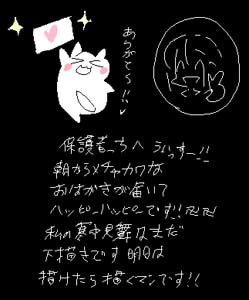 ありがてぇ〜!!
保護者ーちへ うぃっすー!!
朝からメチャカワな
おはがきが届いて
ハッピーハッピーです!!
私の暑中見舞はまだ
下描きです 明日は
描けたら描くマンです!!